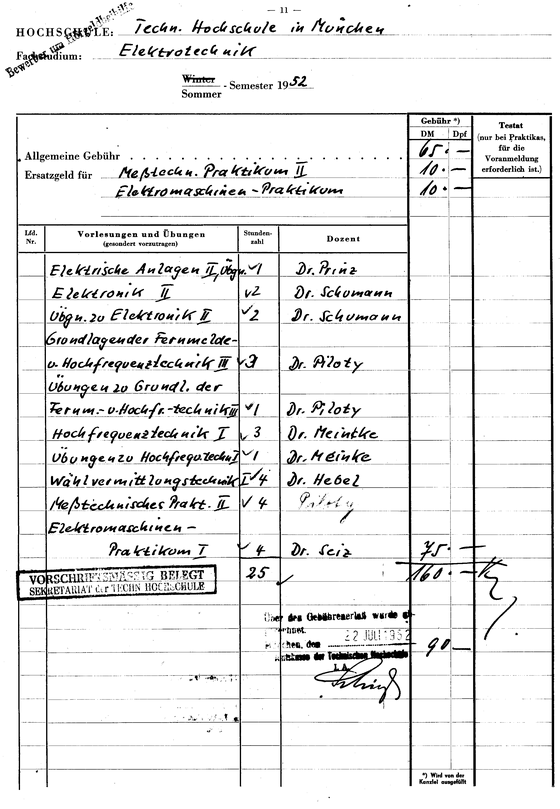 — 11 —
Bewerber um Einzel-Beihilfe
HOCHSCHULE: Techn. Hochschule in München
Fachstudium: Elektrotechnik
Winter
Sommer - Semester 1952
Gebühr *)
DM Dpf
Testat
(nur bei Praktikas,
für die
Voranmeldung
erforderlich ist.)
Allgemeine Gebühr . . . . . . . . . . 65.—
Ersatzgeld für Meßtechn. Praktikum II 10.—
Elektromaschinen-Praktikum 10.—
Lfd. Nr. Vorlesungen und Übungen (gesondert vorzutragen) Stundenzahl Dozent
Elektrische Anlagen II, Übgn. 1 Dr. Prinz
Elektronik II 2 Dr. Schumann
Übgn. zu Elektronik II 2 Dr. Schumann
Grundlagen der Fernmelde-
u. Hochfrequenztechnik III 3 Dr. Piloty
Übungen zu Grundl. der
Fernm.- u. Hochfr.-technik III 1 Dr. Piloty
Hochfrequenztechnik I 3 Dr. Meinke
Übungen zu Hochfrequ.techn I 1 Dr. Meinke
Wählvermittlungstechnik I 4 Dr. Hebel
Meßtechnisches Prakt. II 4 Piloty
Elektromaschinen-
Praktikum I 4 Dr. Seiz 75.—
25 160.—
VORSCHRIFTSMÄSSIG BELEGT
SEKRETARIAT der TECHN HOCHSCHULE
Über den Gebührenerlaß wurde
22 JULI 1952
90 —
der Technischen Hochschule
I. A.
*) Wird von der
Kanzlei ausgefüllt